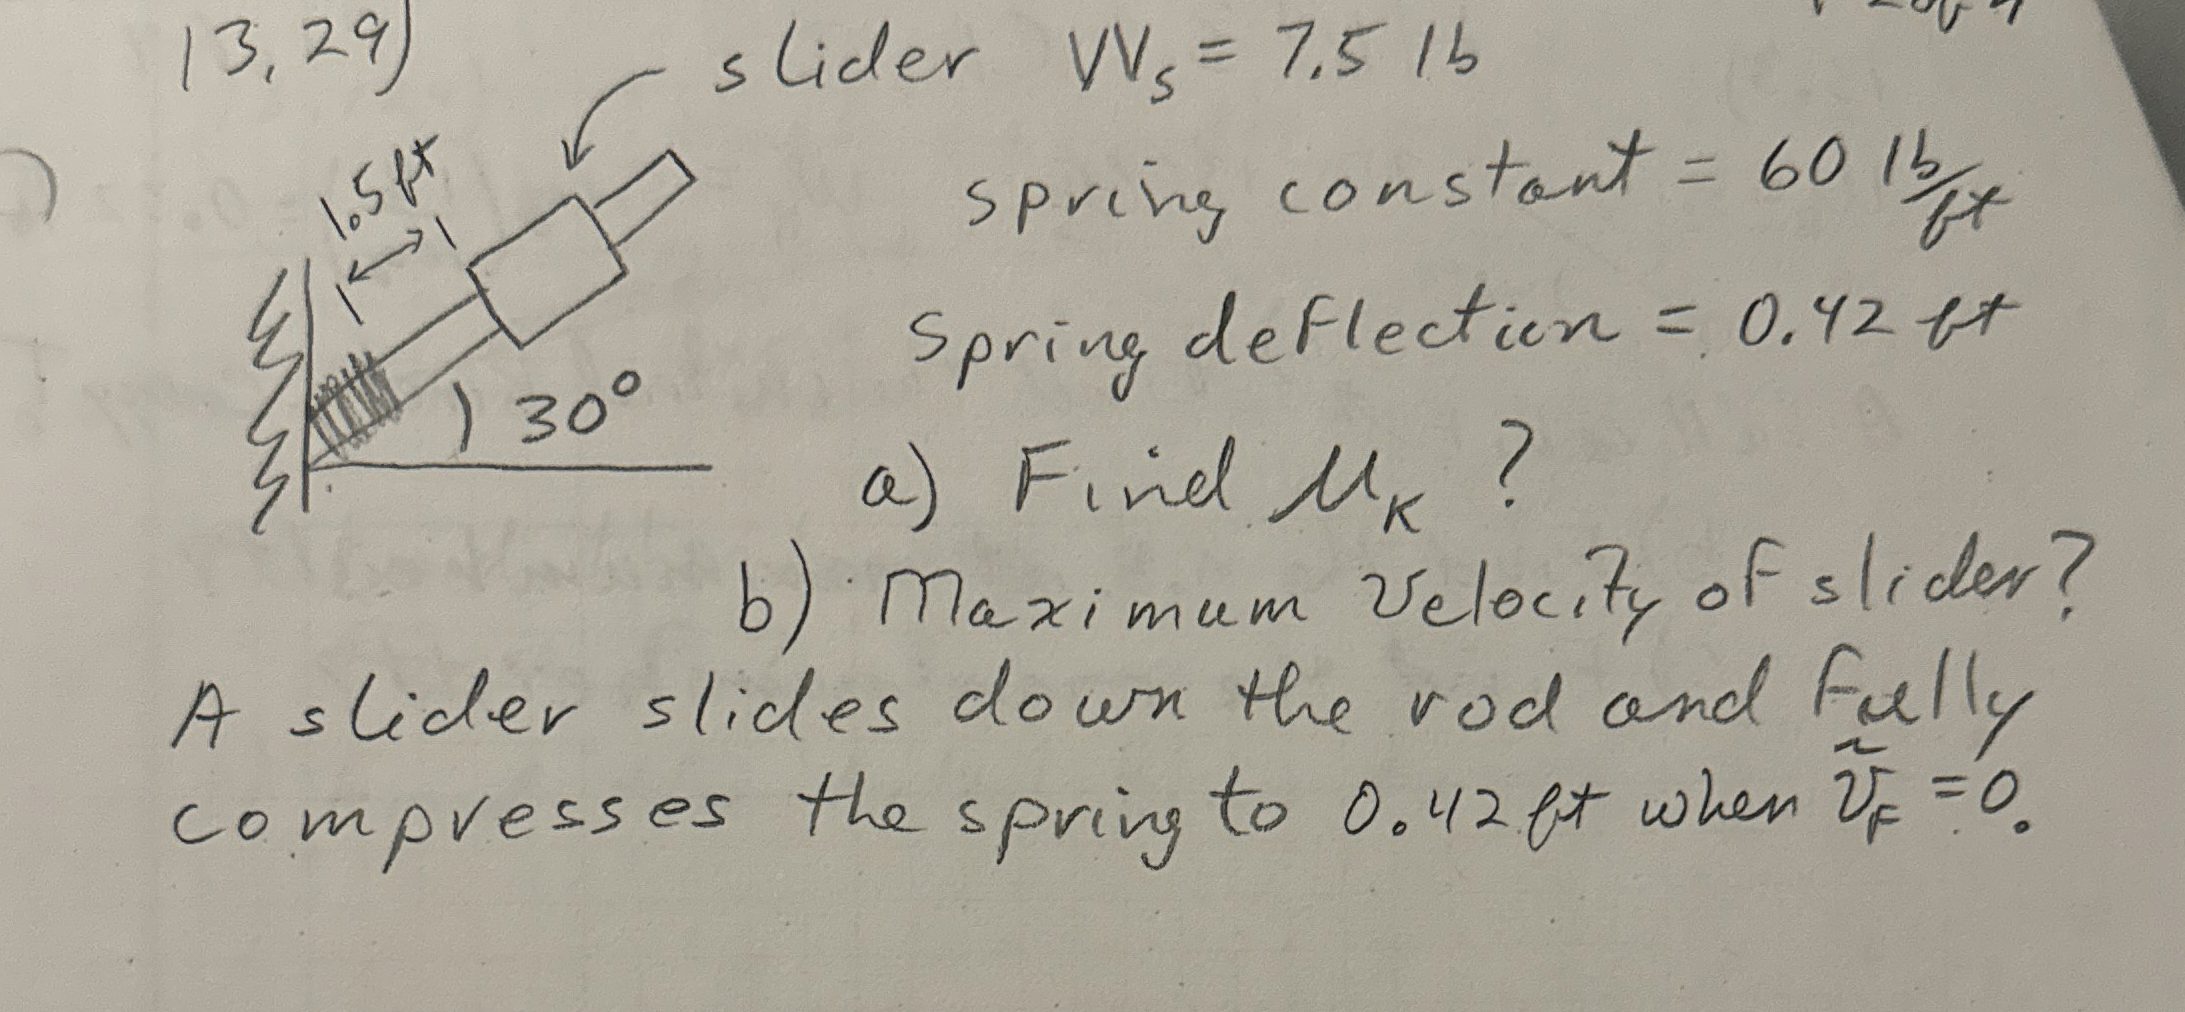 13,29)
slider W_s = 7.5 lb
1.5 ft
spring constant = 60 lb/ft
Spring deflection = 0.42 ft
30°
a) Find μ_K ?
b) Maximum velocity of slider?
A slider slides down the rod and fully
compresses the spring to 0.42 ft when v_F = 0.